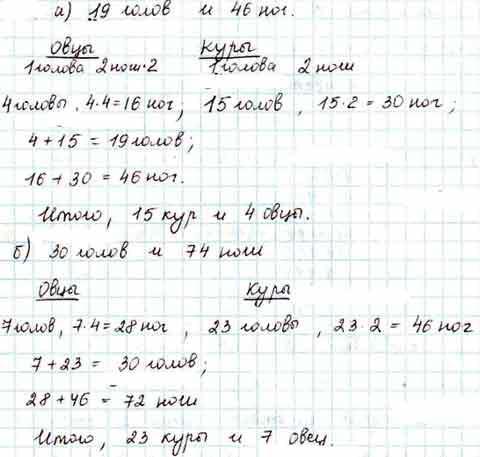 а) 19 голов и 46 ног.
Овцы Куры
1 голова 2 ноги·2 1 голова 2 ноги
4 головы, 4·4=16 ног; 15 голов, 15·2=30 ног;
4+15=19 голов;
16+30=46 ног.
Итого, 15 кур и 4 овцы.
б) 30 голов и 74 ноги
Овцы Куры
7 голов, 7·4=28 ног, 23 головы, 23·2=46 ног
7+23= 30 голов;
28+46=72 ноги
Итого, 23 куры и 7 овец.